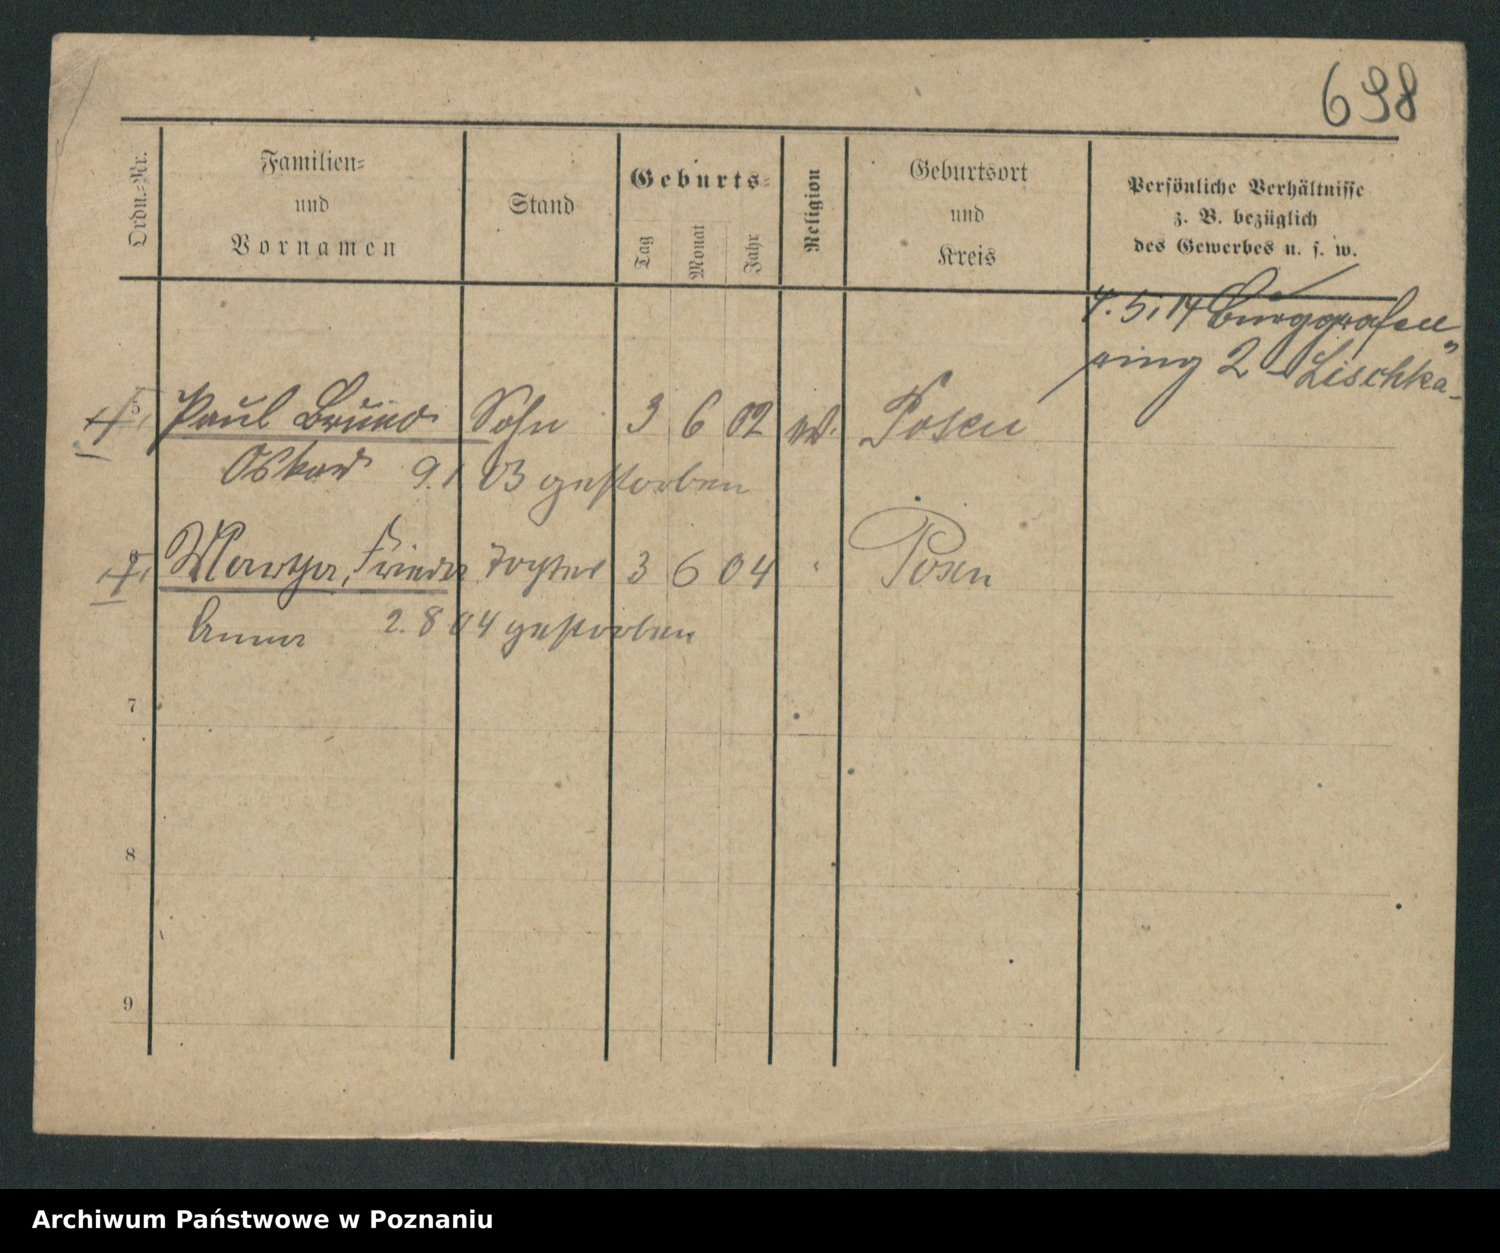 698
Ordn.=Nr.
Familien=
und
Vornamen
Stand
Geburts=
Tag
Monat
Jahr
Religion
Geburtsort
und
Kreis
Persönliche Verhältnisse
z. B. bezüglich
des Gewerbes u. s. w.
4. 5. 14 Burggrafen
ring 2 Lischka
5 Paul Bruno Sohn 3 6 02 Posen
Oskar 9. 1 03 gestorben
Martha, Frieda Tochter 3 6 04 " Posen
Anna 2. 8 04 gestorben
7
8
9
Archiwum Państwowe w Poznaniu